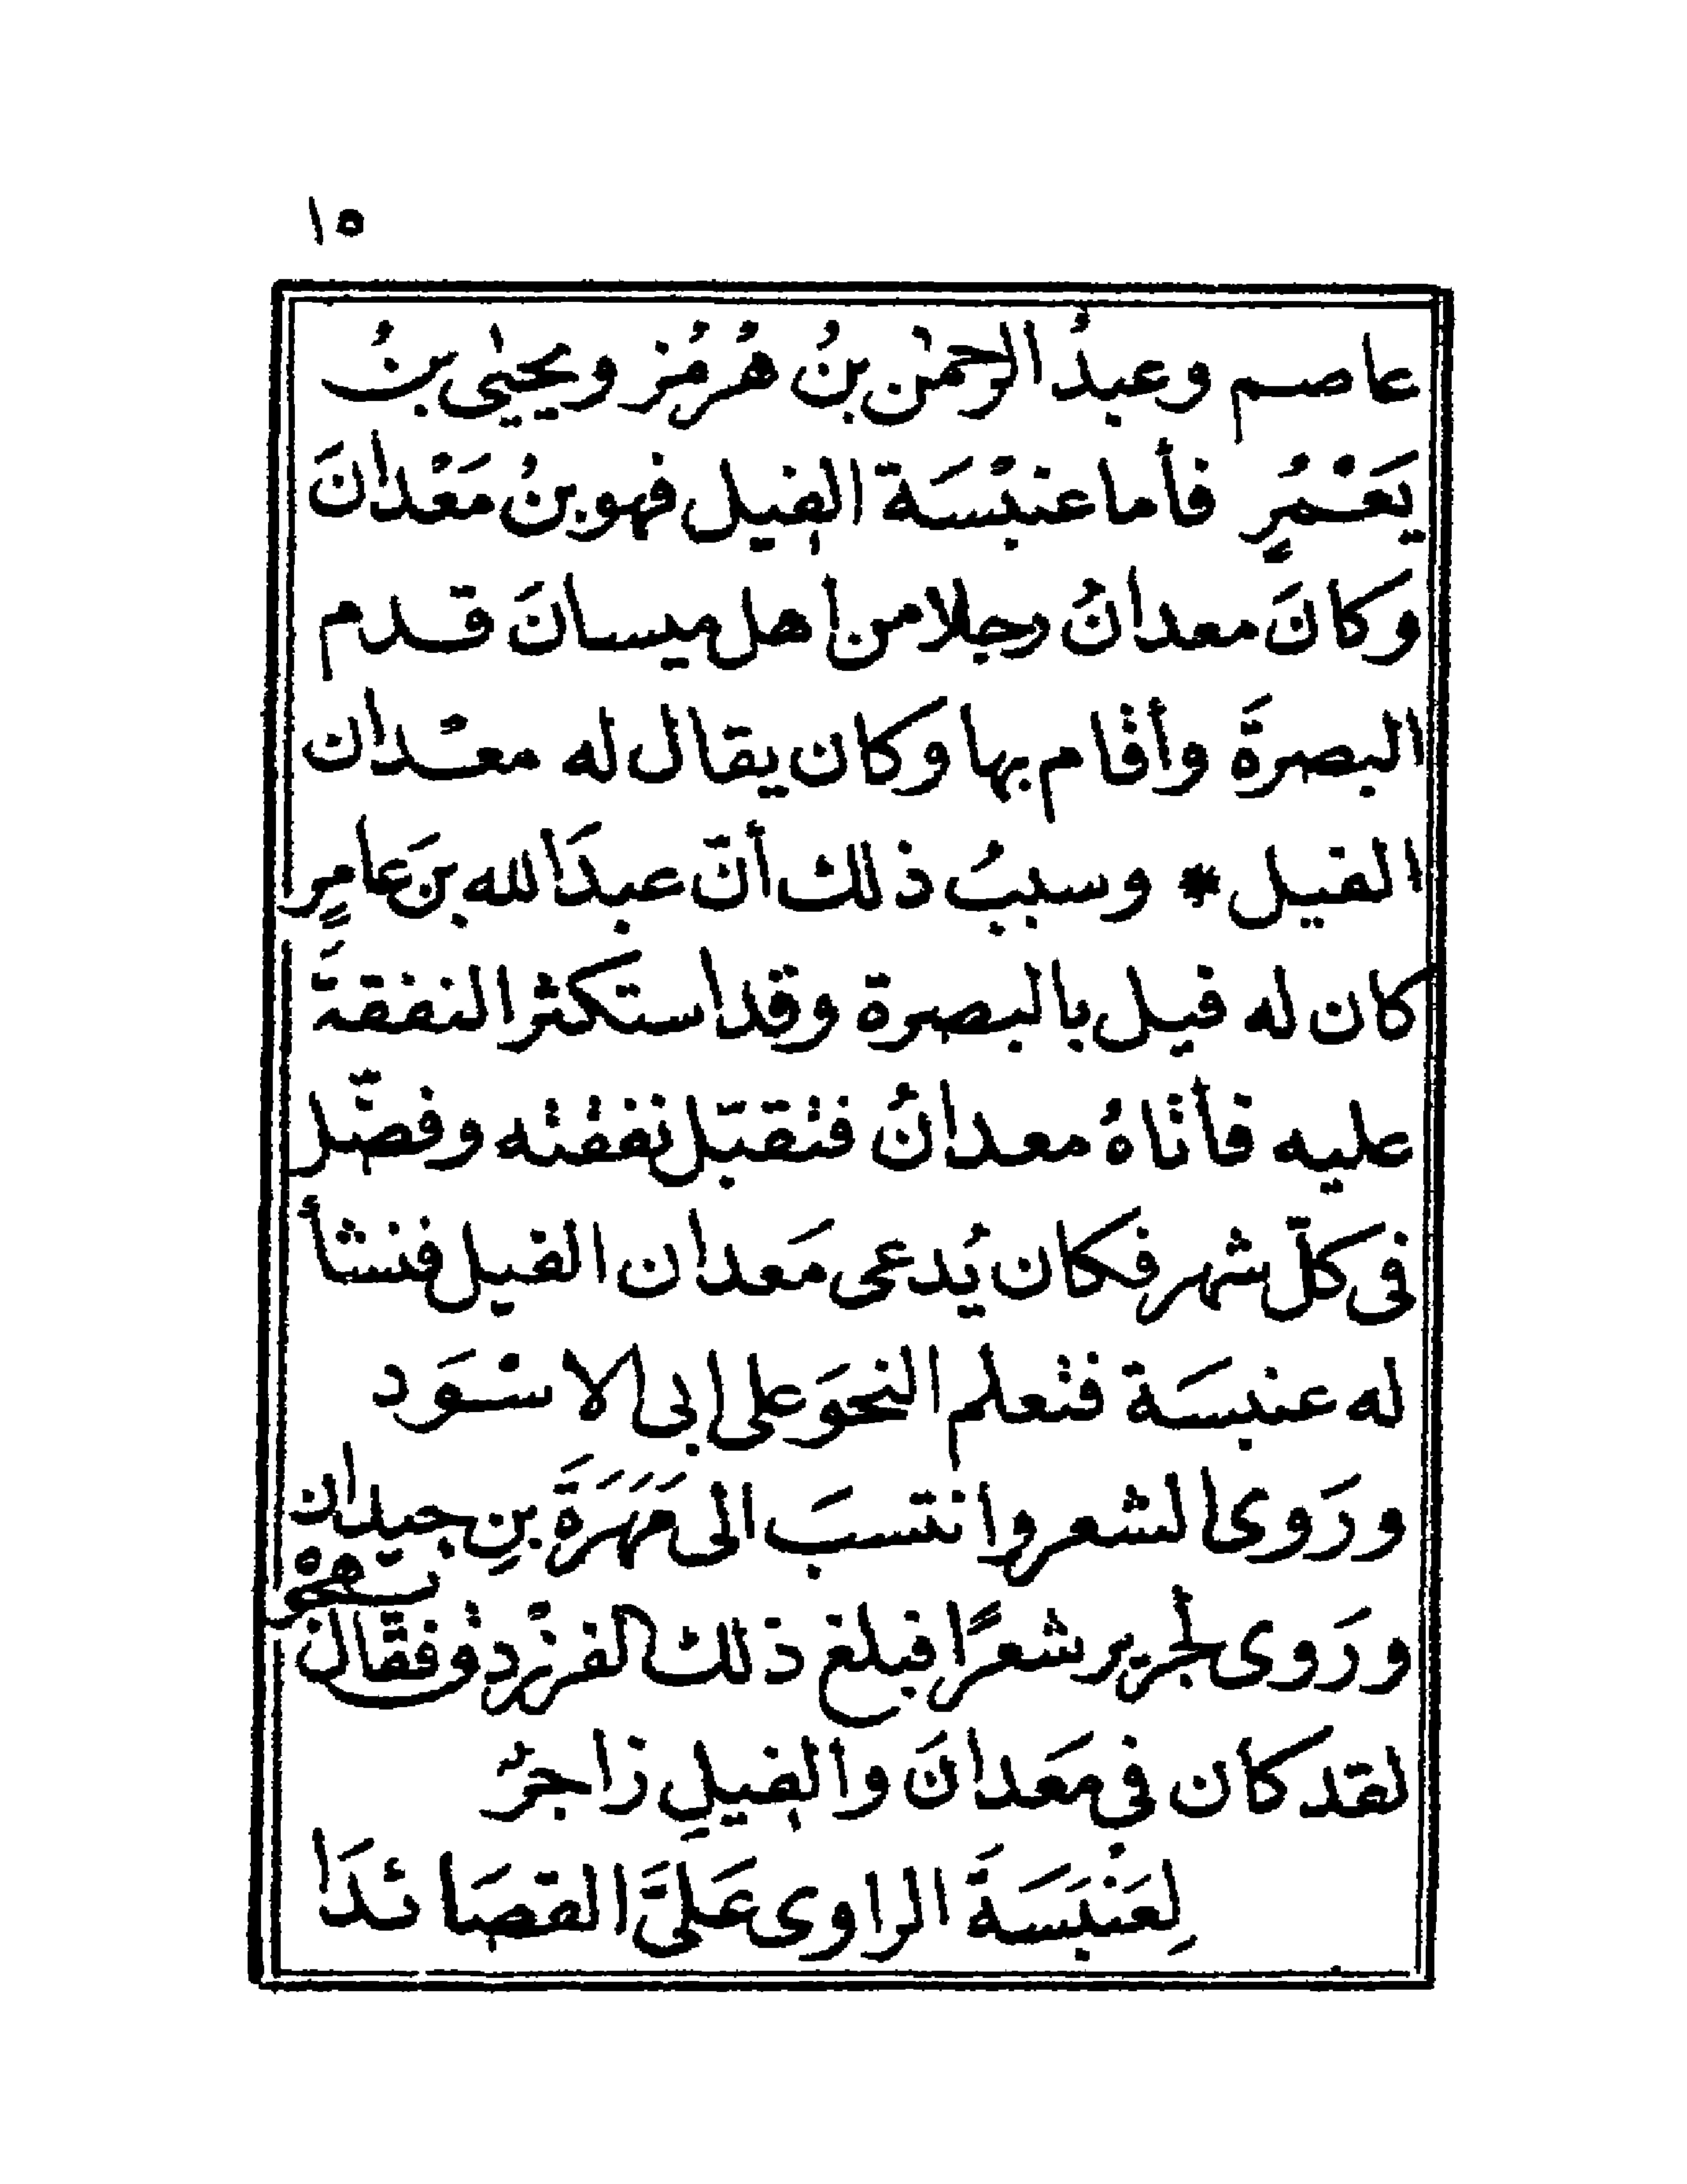 ١٥
عاصم وعبدُ الرحمٰن بنُ هُرمُز ويحيٰى بنُ
يَعْمُرٍ فأما عنبْسَة الفيل فهو بنُ مَعْدانَ
وكانَ معدانُ رجلا من اهل ميسانَ قدم
البصرةَ وأقام بها وكان يقال له معْدان
الفيل * وسببُ ذلك أنّ عبدَ الله بنَ عامرٍ
كان له فيل بالبصرة وقد استكثر النفقةَ
عليه فأتاهُ معدانُ فتقبّل نفقته وفضّل
فى كلّ شهر فكان يُدعى مَعدان الفيل فنشأ
له عنبسَة فتعلم النحوَ على ابى الاسْوَد
ورَوى الشعر وانتسبَ الى مَهَرَةَ بنِ حيدان
ورَوى لجرير شعرًا فبلغ ذلك الفرزدق فقال
لقد كان فى مَعدانَ والفيلِ زاجرٌ
لِعَنْبَسَةَ الراوى عَلَىَّ القصَائدَا